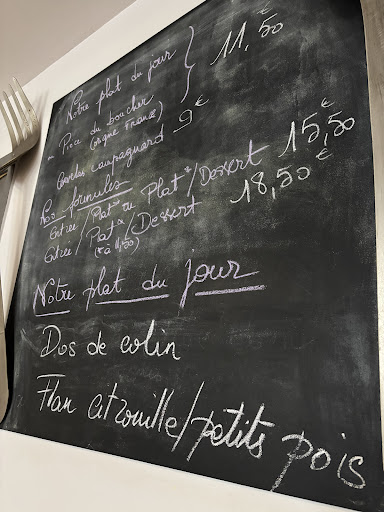 Notre plat du jour
ou Pièce du boucher 11,50€
(origine France)
campagnard 9€
Nos formules
Entrée/Plat* ou Plat*/Dessert 15,50€
Entrée/Plat*/Dessert 18,50€
(* à 11,50)
Notre plat du jour
Dos de colin
Flan citrouille/petits pois